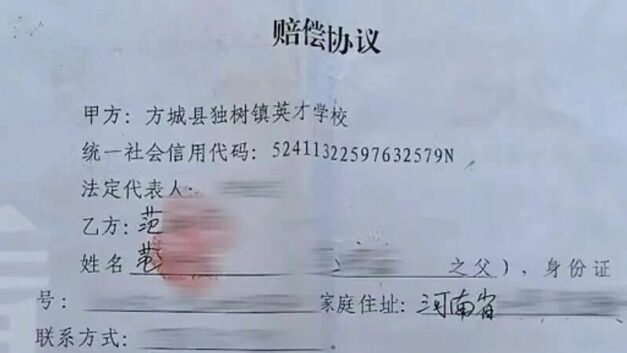 赔偿协议
甲方：方城县独树镇英才学校
统一社会信用代码：52411322597632579N
法定代表人：
乙方：范
姓名 范 之父），身份证
号： 家庭住址：河南省
联系方式： 。